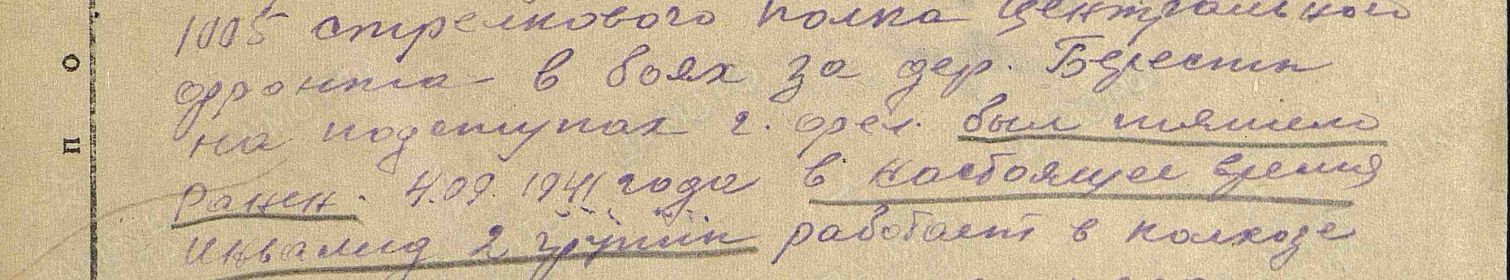 1005 стрелкового полка Центрального
фронта в боях за дер. Берестн
на подступах г. Орел. был тяжело
ранен. 4.09.1941 года в настоящее время
инвалид 2 группы работает в колхозе
П О